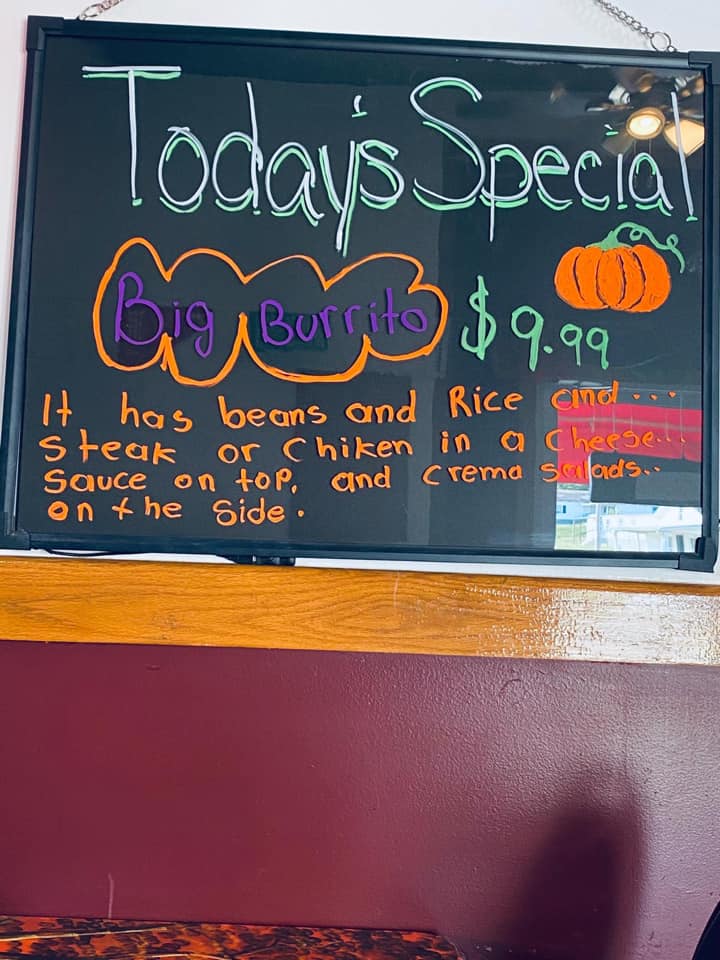 Today's Special
Big Burrito $9.99
It has beans and Rice and...
Steak or Chiken in a Cheese...
Sauce on top, and Crema Salads..
on the Side.